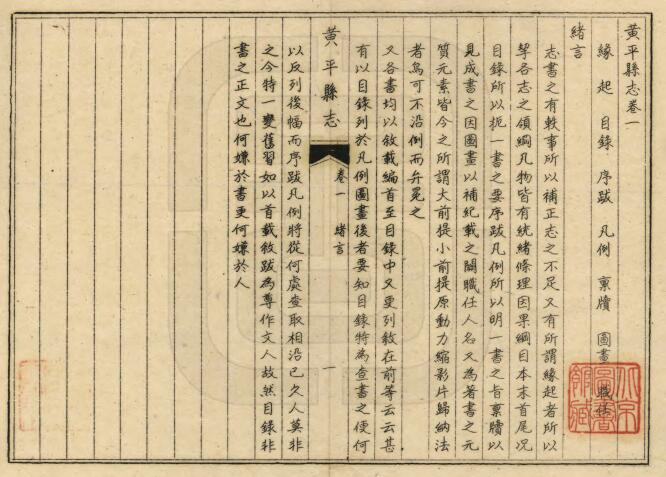 黃平縣志卷一
緣起 目錄 序跋 凡例 稟牘 圖畫 職任
緒言
志書之有軼事所以補正志之不足又有所謂緣起者所以
挈各志之領綱凡物皆有統緒條理因果綱目本末首尾况
目錄所以扼一書之要序跋凡例所以明一書之旨稟牘以
見成書之因圖畫以補紀載之闕職任人名又為著書之元
質元素皆今之所謂大前提小前提原動力縮影片歸納法
者烏可不沿例而弁冕之
又各書均以敘載編首至目錄中又更列敘在前等云云甚
有以目錄列於凡例圖畫後者要知目錄特為查書之便何
黃平縣志
卷一 緒言
一
以反列後幅而序跋凡例將從何處查取相沿已久人莫非
之今特一變舊習如以首載敘跋為尊作文人故然目錄非
書之正文也何嫌於書更何嫌於人